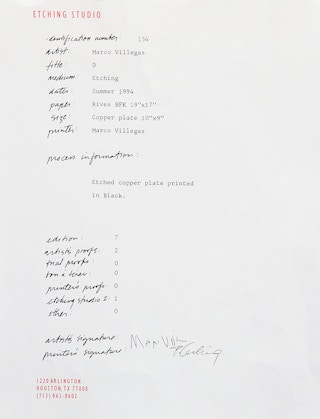 ETCHING STUDIO
identification number: 154
artist: Marco Villegas
title: D
medium: Etching
date: Summer 1994
paper: Rives BFK 19"x17"
size: Copper plate 10"x9"
printer: Marco Villegas
process information:
Etched copper plate printed
in Black.
edition: 7
artist's proofs: 2
trial proofs: 0
bon à tirer: 0
printer's proofs: 0
etching studio I: 1
other: 0
artist's signature:
printer's signature:
1220 ARLINGTON
HOUSTON, TX 77008
(713) 863-0602